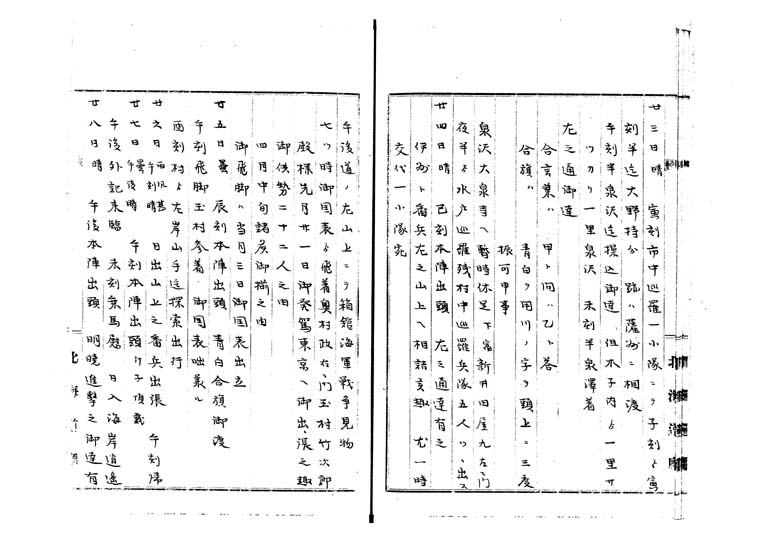 廿三日晴 寅刻市中巡羅一小隊ニテ子刻ゟ寅
刻半迄大野持分 跡ハ薩州ニ相渡
午刻半泉沢迄操込御達 但木子内ゟ一里廿
一里泉沢 未刻半泉澤着
左之通御達
合言葉ハ 甲ト問ハ乙ト答
合旗ハ 青白ヲ用川ノ字ヲ頭上ニ三度
振可申事
泉沢大泉寺ヘ暫時休足下宿新井田屋九左衛門
夜半ゟ水戸巡羅残村中巡羅兵隊五人ツヽ出ス
廿四日晴 己刻本陣出頭 左之通達有之
伊州ト番兵左之山上ヘ相詰候趣 尤一時
交代一小隊宛
午後道ノ左山上ニテ箱館海軍戦争見物
七ツ時御国表ゟ飛着奥村政右衛門玉村竹次郎
殿様先月廿一日御発駕東京ヘ御出張之趣
御供勢二十二人之由
四月中旬諸侯御揃之由
御飛脚ハ当月三日御国表出立
廿五日曇 辰刻本陣出頭 青白合旗御渡
午刻飛脚玉村参着 御国表咄承ル
酉刻村ゟ左岸山手迄探索出行
廿六日 日出山上之番兵出張 午刻帰
廿七日 午刻本陣出頭 頂戴
午後外記来臨 未刻乗馬 日入海岸逍遥
廿八日晴 午後本陣出頭 明暁進撃之御達有
北海道廳